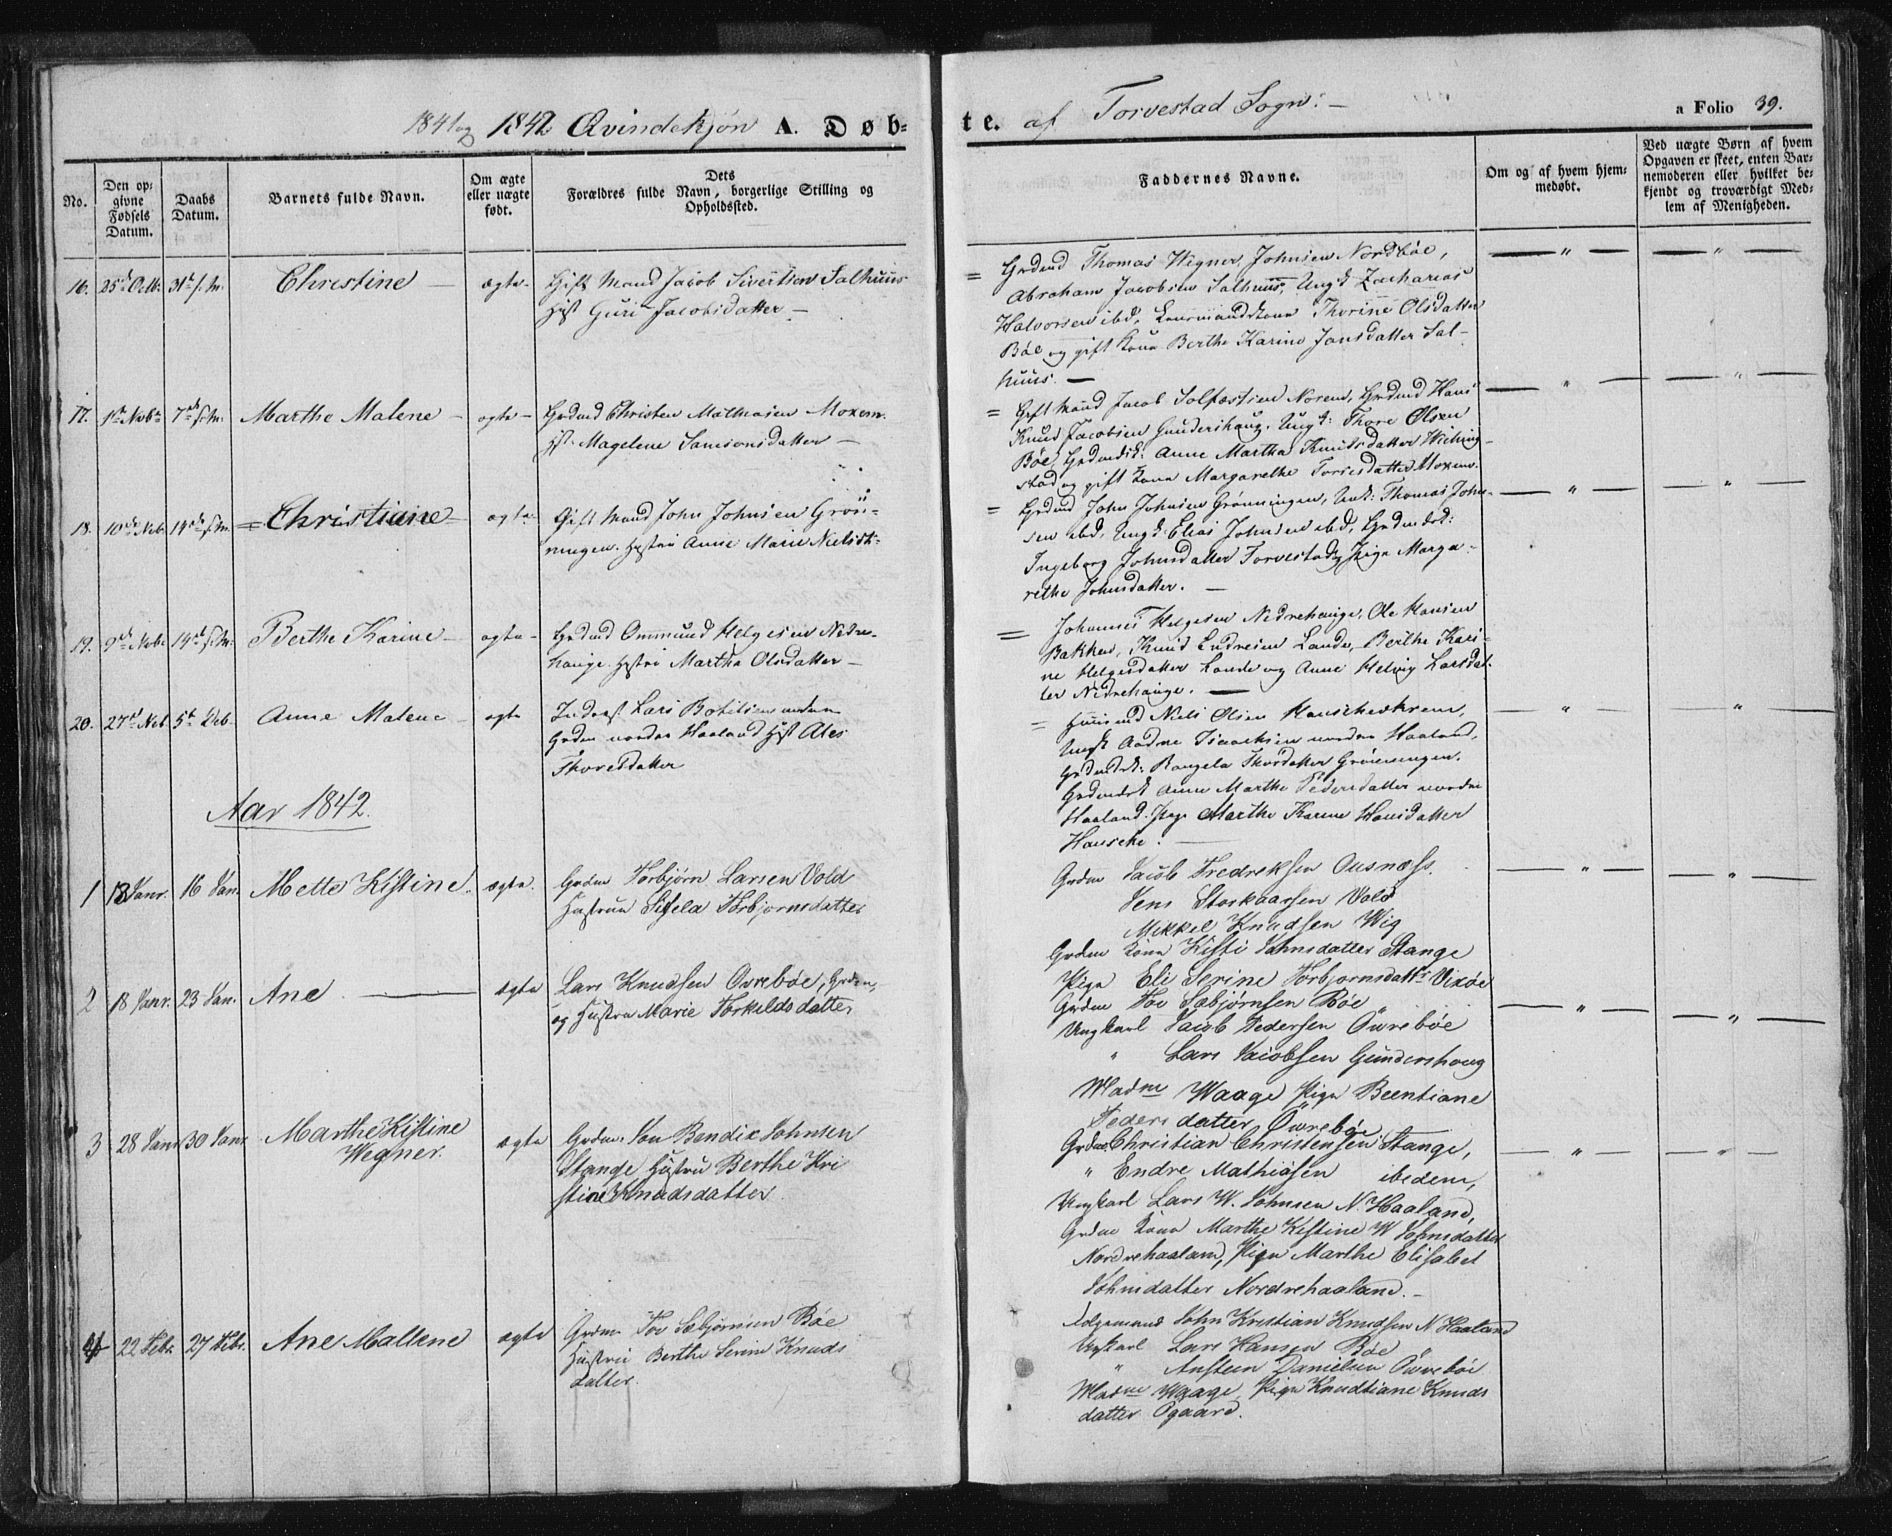 1841 og 1842 Qvindekjøn A. Døb-
te. af Torvestad Sogn:-
a Folio 39.
No.
Den op-
givne
Fødsels
Datum.
Daabs
Datum.
Barnets fulde Navn.
Om ægte
eller uægte
født.
Dets
Forældres fulde Navn, borgerlige Stilling og
Opholdssted.
Faddernes Navne.
Om og af hvem hjem-
medøbt.
Ved uægte Børn af hvem
Opgaven er skeet, enten Bar-
nemoderen eller hvilket be-
kjendt og troværdigt Med-
lem af Menigheden.
16. 25de Octb. 31te s.M. Christine ægte
Gift Mand Jacob Sivertsen Salhuus
Hust Guri Jacobsdatter
Grdmd Thomas Wigner Johnsen Nordbøe,
Abraham Jacobsen Salhuus, Ungk Zacharias
Halvorsen ibd, Thorine Olsdatter
Bøe og gift Kone Berthe Karine Jansdatter Sal-
huus.
17. 1te Novbr 7de s.M. Marthe Malene ægte
Grdmd Christen Mathiasen Moxem.
Hst. Magelene Samsonsdatter
Gift Mand Jacob Solfæstsen Norem, Grdmd Hans
Knud Jacobsen GunderShaug. Ungk: Thore Olsen
Bøe, Anne Martha Knudsdatter Wiching-
stad og gift Kone Margarethe Torresdatter Moxem.
18. 10de Nvb. 14de s.M. =Christine= ægte
Gift Mand John Johnsen Grön-
ningen. Hustru Anne Marie Nielsdt:
Grdmd John Johnsen Grønningen, Thomas John-
sen ibd, Ungk Elias Johnsen ibd,
Ingeborg Johnsdatter Torvestad, Pige Marga-
rethe Johnsdatter.
19. 9de Nvb. 14de s.M. Berthe Karine ægte
Grdmd Ommund Helgesen Nedre-
hauge. Hustru Martha Olsdatter
Johannes Helgesen Nedrehauge, Ole Hansen
Bakken, Knud Endresen Lande, Berthe Kari-
ne Helgesdatter Lande og Anne Helvig Larsdat-
ter Nedrehauge.
20. 27de Nvb. 5te Deb. Anne Malene ægte
Inderst Lars Botilsen under
Grden nordre Haaland Hust Ales
Thoresdatter
Huusmd Niels Olsen Hauscheskrem,
Ungk Aadne Isaachsen nordre Haaland,
Rangela Thordatter Grönningen.
Anne Marthe Pedersdatter nordre
Haaland. Pige Marthe Karine Hansdatter
Hauscke.
Aar 1842.
1 13 Janr. 16 Jan. Mette Kistine. ægte.
Grdm Torbjørn Larsen Vold
Hustrue Sissela Torbjornsdatter
Grdm Jacob Fredreksen Ousness.
Jens Storkaarsen Vold
Mikkel Knudsen Wig
Grdm Kone Kisti Johnsdatter Stange
Pige Eli Serine Torbjornsdattr Vixøe
2 18 Janr. 23 Jan. Ane ægte
Lars Knudsen Ovrebøe, Grdm,
og Hustru Marie Torkildsdatter
Grdm Tov Sæbjørnsen Bøe
Ungkarl Jacob Pedersen Övrebøe
" Lars Jacobsen Gundershoug
Madme Waage Pige Beentiane
Pedersdatter Övrebøe
3 28 Janr 30 Janr. Marthe Kistine
Wegner. ægte
Grdm. Jon Bendix Johnsen
Stange Hustru Berthe Kri
stine Knudsdatter.
Grdm Christian Christensen Stange,
" Endre Mathiasen ibedem,
Ungkarl Lars W. Johnsen N. Haaland,
Grdm Kone Marthe Kistine W Johnsdatter
Nordrehaalam, Pige Marthe Elisabet
Johnsdatter Nordrehaaland.-
4 22 Feb. 27 Febr. Ane Mallene ægte
Grdm. Tov Sæbjørnsen Bøe
Hustru Berthe Serine Knuds
datter.
John Kristian Knudsen N Haaland
Ungkarl Lars Hansen Bøe
" Ansteen Danielsen Övrebøe
Madme Waage, Pige Knudtiane Knuds
datter Ogaard.